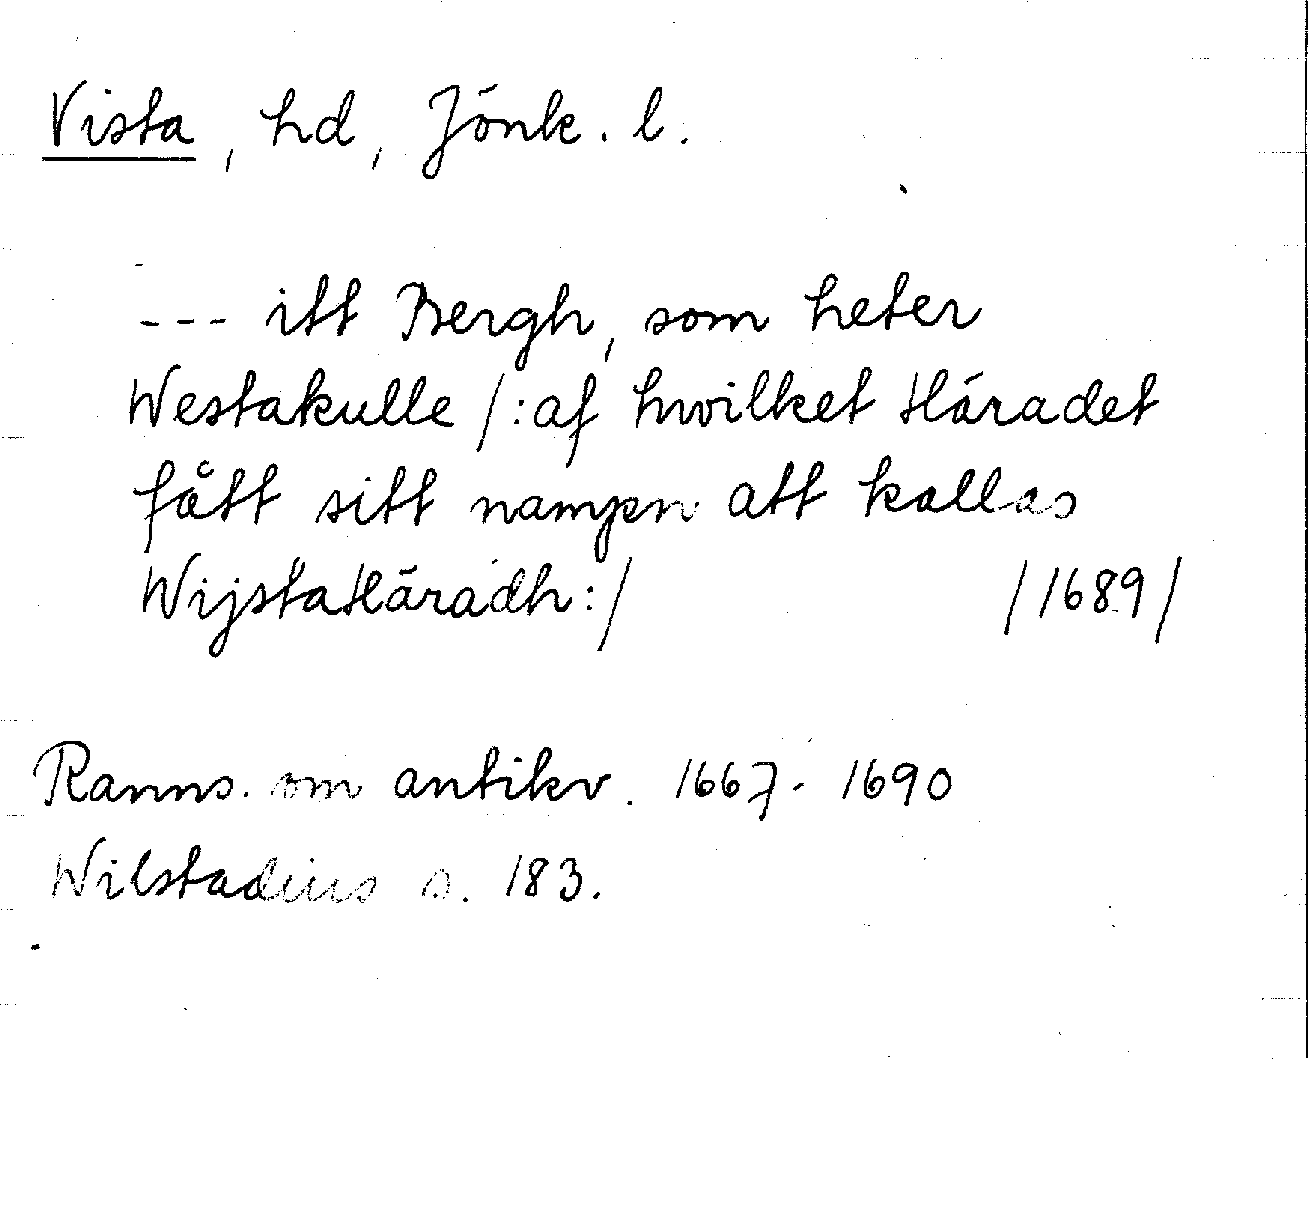 Vista, hd, Jönk. l.
--- itt Bergh, som heter
Westakulle /:af hwilket Häradet
fått sitt nampn att kallas
WijstaHäradh:/ /1689/
Ranns. om antikv. 1667-1690
Wilstadius s. 183.